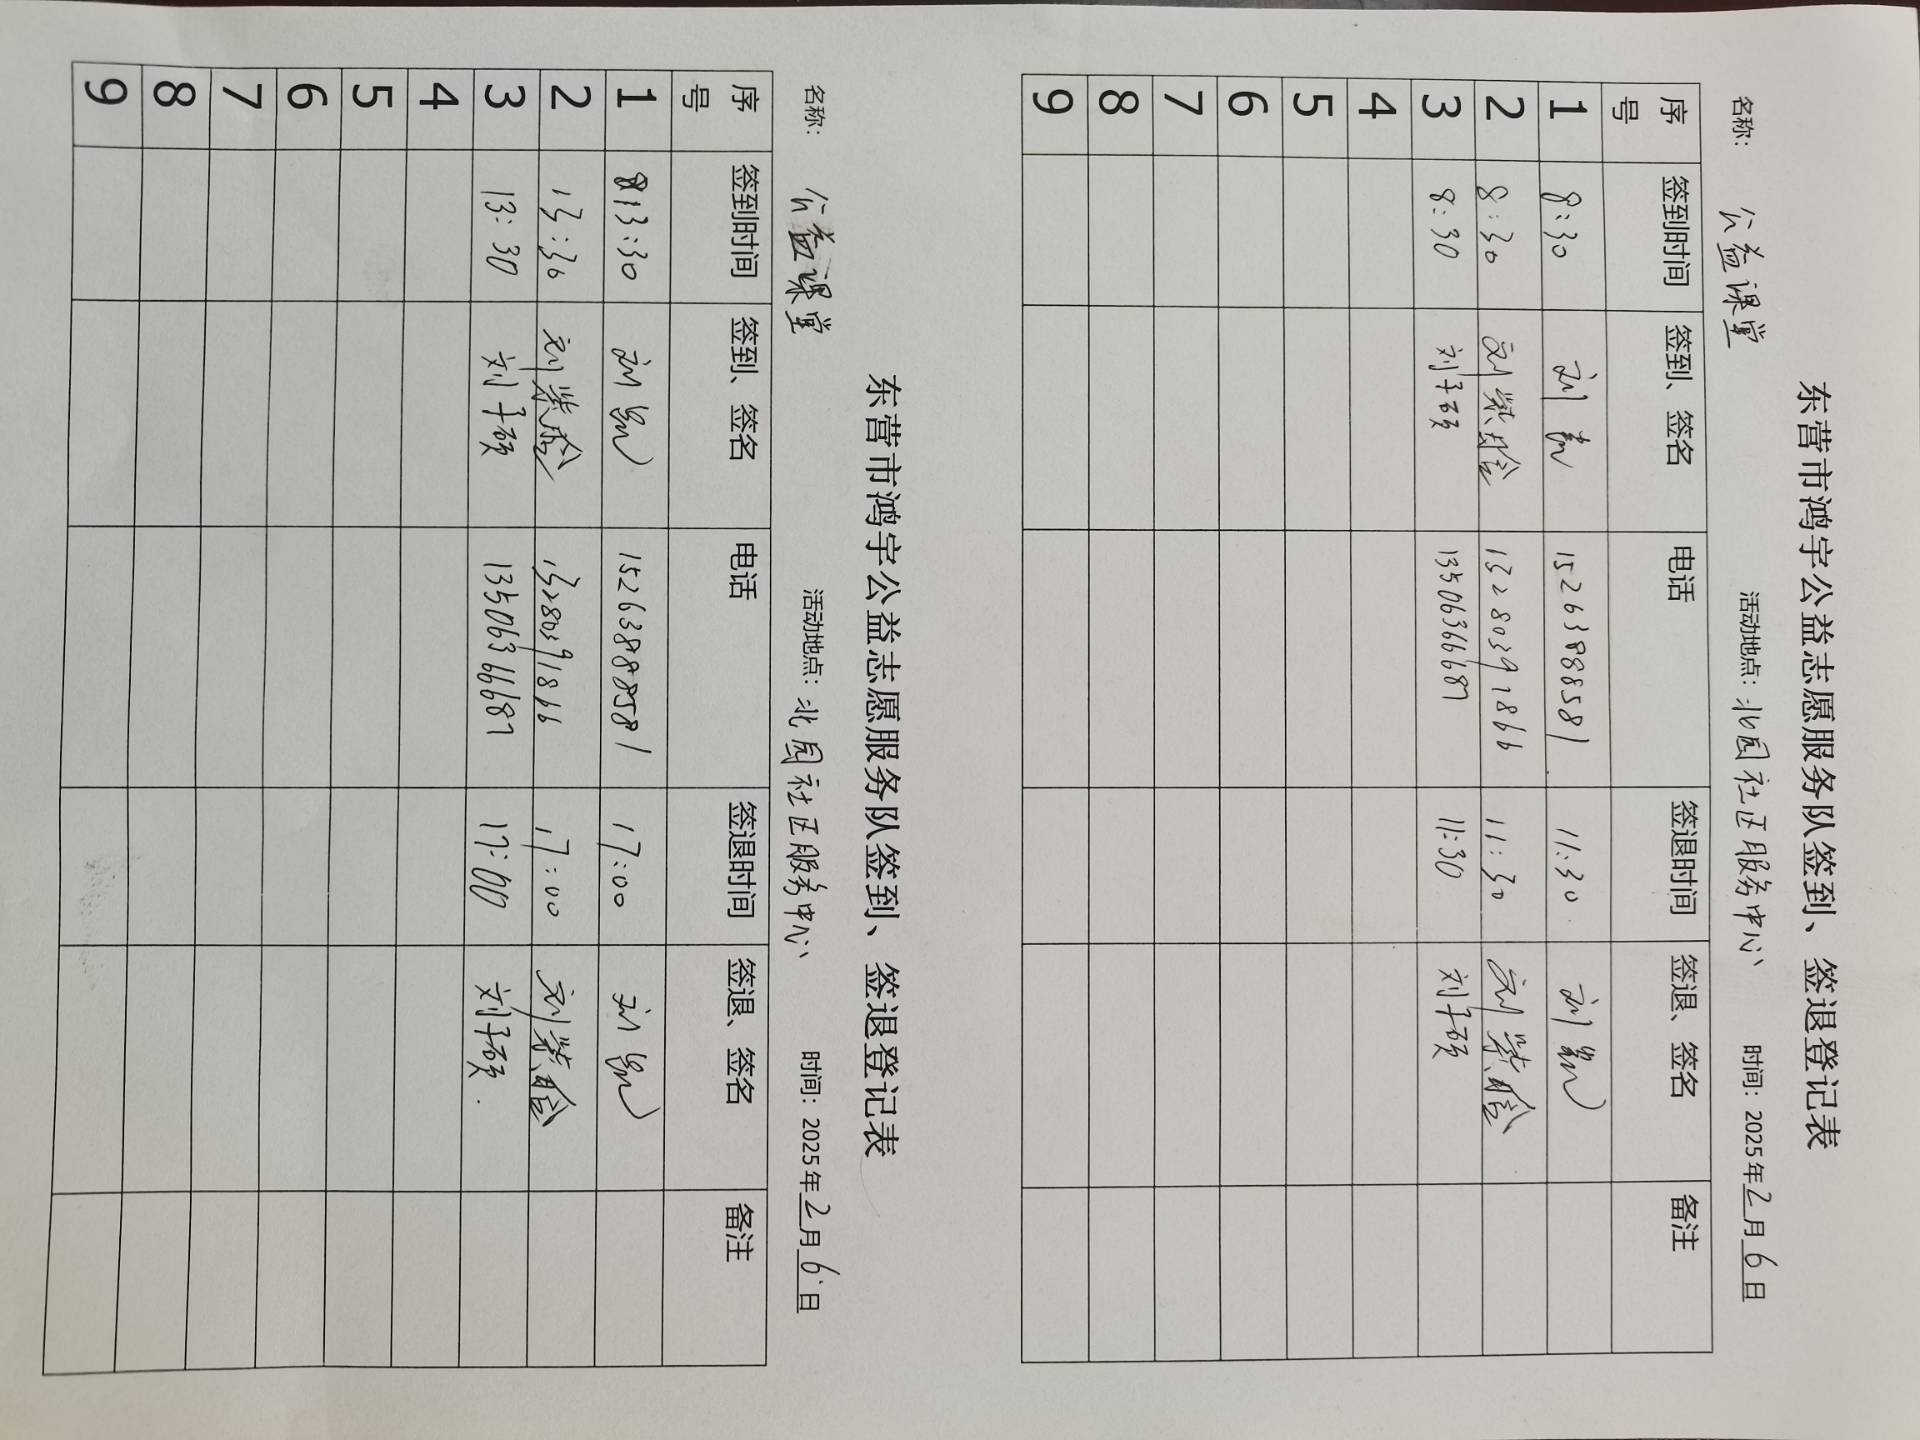 东营市鸿宇公益志愿服务队签到、签退登记表
名称： 公益课堂 活动地点：北园社区服务中心 时间：2025年2月6日
序号 签到时间 签到、签名 电话 签退时间 签退、签名 备注
1 8:30 刘 15263888581 11:30 刘
2 8:30 刘紫晗 13280391866 11:30 刘紫晗
3 8:30 刘子硕 13506366687 11:30 刘子硕
4
5
6
7
8
9
东营市鸿宇公益志愿服务队签到、签退登记表
名称： 公益课堂 活动地点：北园社区服务中心 时间：2025年2月6日
序号 签到时间 签到、签名 电话 签退时间 签退、签名 备注
1 13:30 刘 15263888581 17:00 刘
2 13:30 刘紫晗 13280391866 17:00 刘紫晗
3 13:30 刘子硕 13506366687 17:00 刘子硕
4
5
6
7
8
9